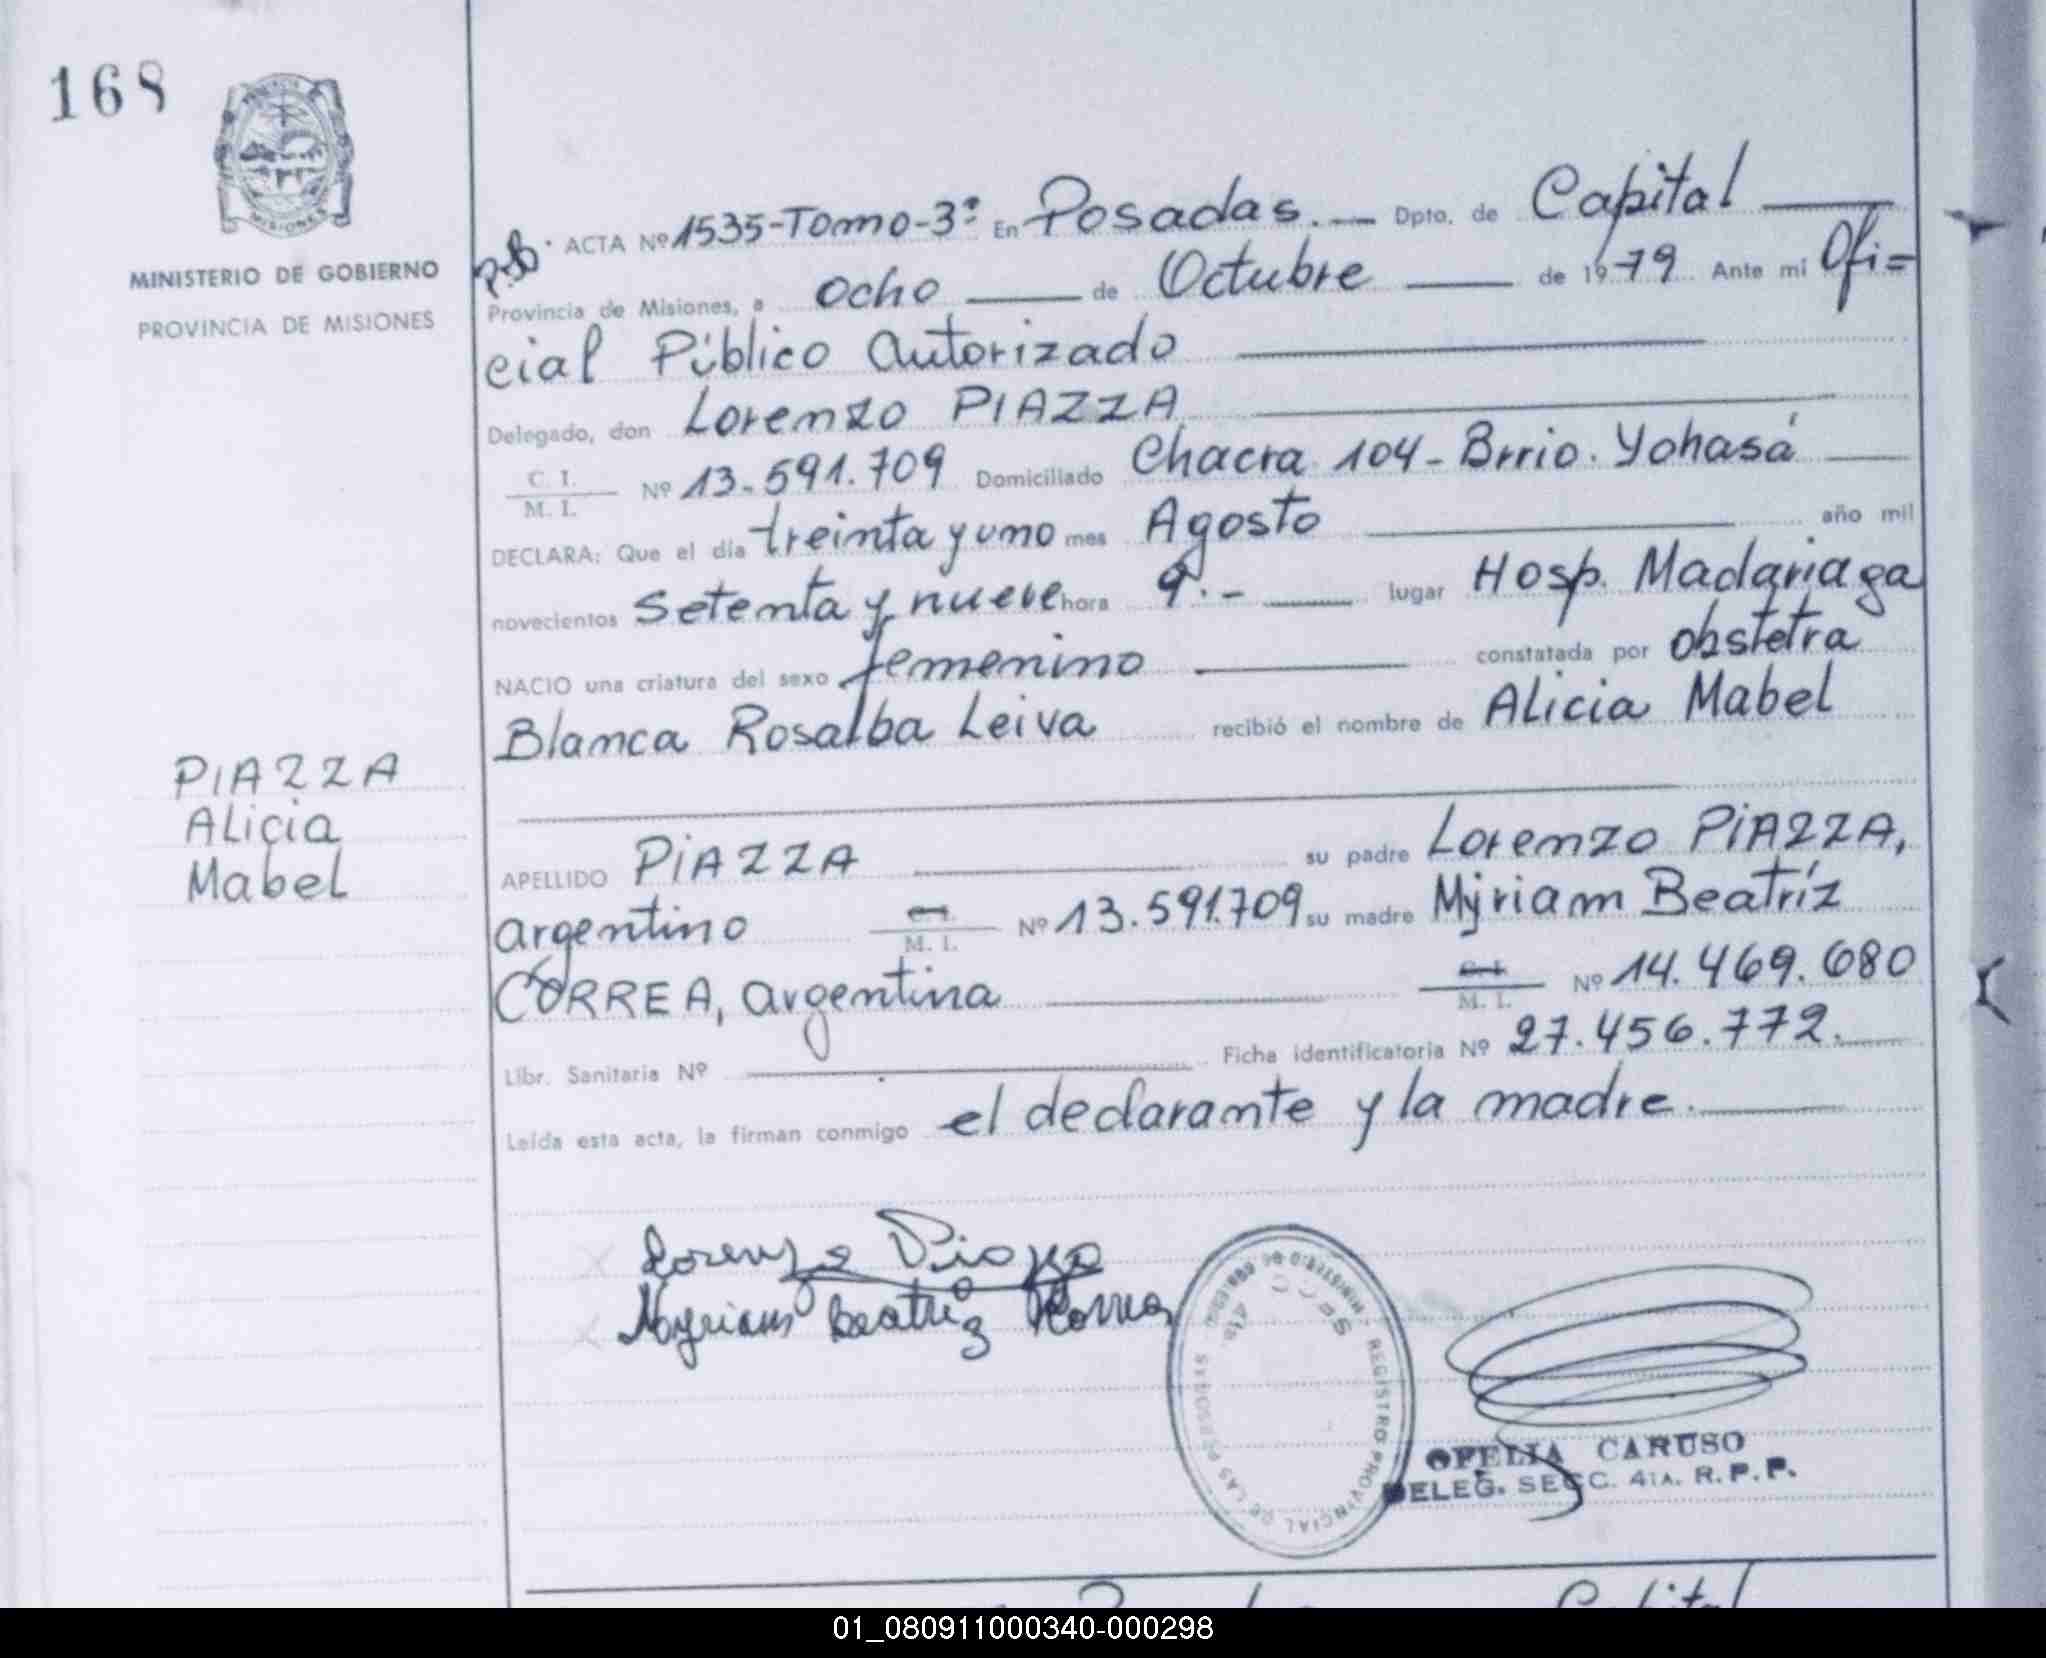 168
MISIONES
MINISTERIO DE GOBIERNO
PROVINCIA DE MISIONES
PIAZZA
Alicia
Mabel
ACTA Nº 1535-Tomo-3º En Posadas.— Dpto. de Capital
Provincia de Misiones, a ocho de Octubre de 1979 Ante mi Ofi=
cial Público Autorizado
Delegado, don Lorenzo PIAZZA
C. I.
M. I. Nº 13.591.709 Domiciliado Chacra 104- Brrio. Yohasá
DECLARA: Que el día treinta y uno mes Agosto año mil
novecientos Setenta y nueve hora 9.- lugar Hosp. Madariaga
NACIO una criatura del sexo femenino constatada por obstetra
Blanca Rosalba Leiva recibió el nombre de Alicia Mabel
APELLIDO PIAZZA su padre Lorenzo PIAZZA,
argentino M. I. Nº 13.591.709 su madre Myriam Beatríz
CORREA, argentina M. I. Nº 14.469.680
Libr. Sanitaria Nº Ficha identificatoria Nº 27.456.772.
Leída esta acta, la firman conmigo el declarante y la madre.
Lorenzo Piazza
Myriam Beatriz Correa
MINISTERIO DE GOBIERNO - REGISTRO PROVINCIAL DE LAS PERSONAS
OFELIA CARUSO
DELEG. SECC. 4TA. R.P.P.
01_080911000340-000298